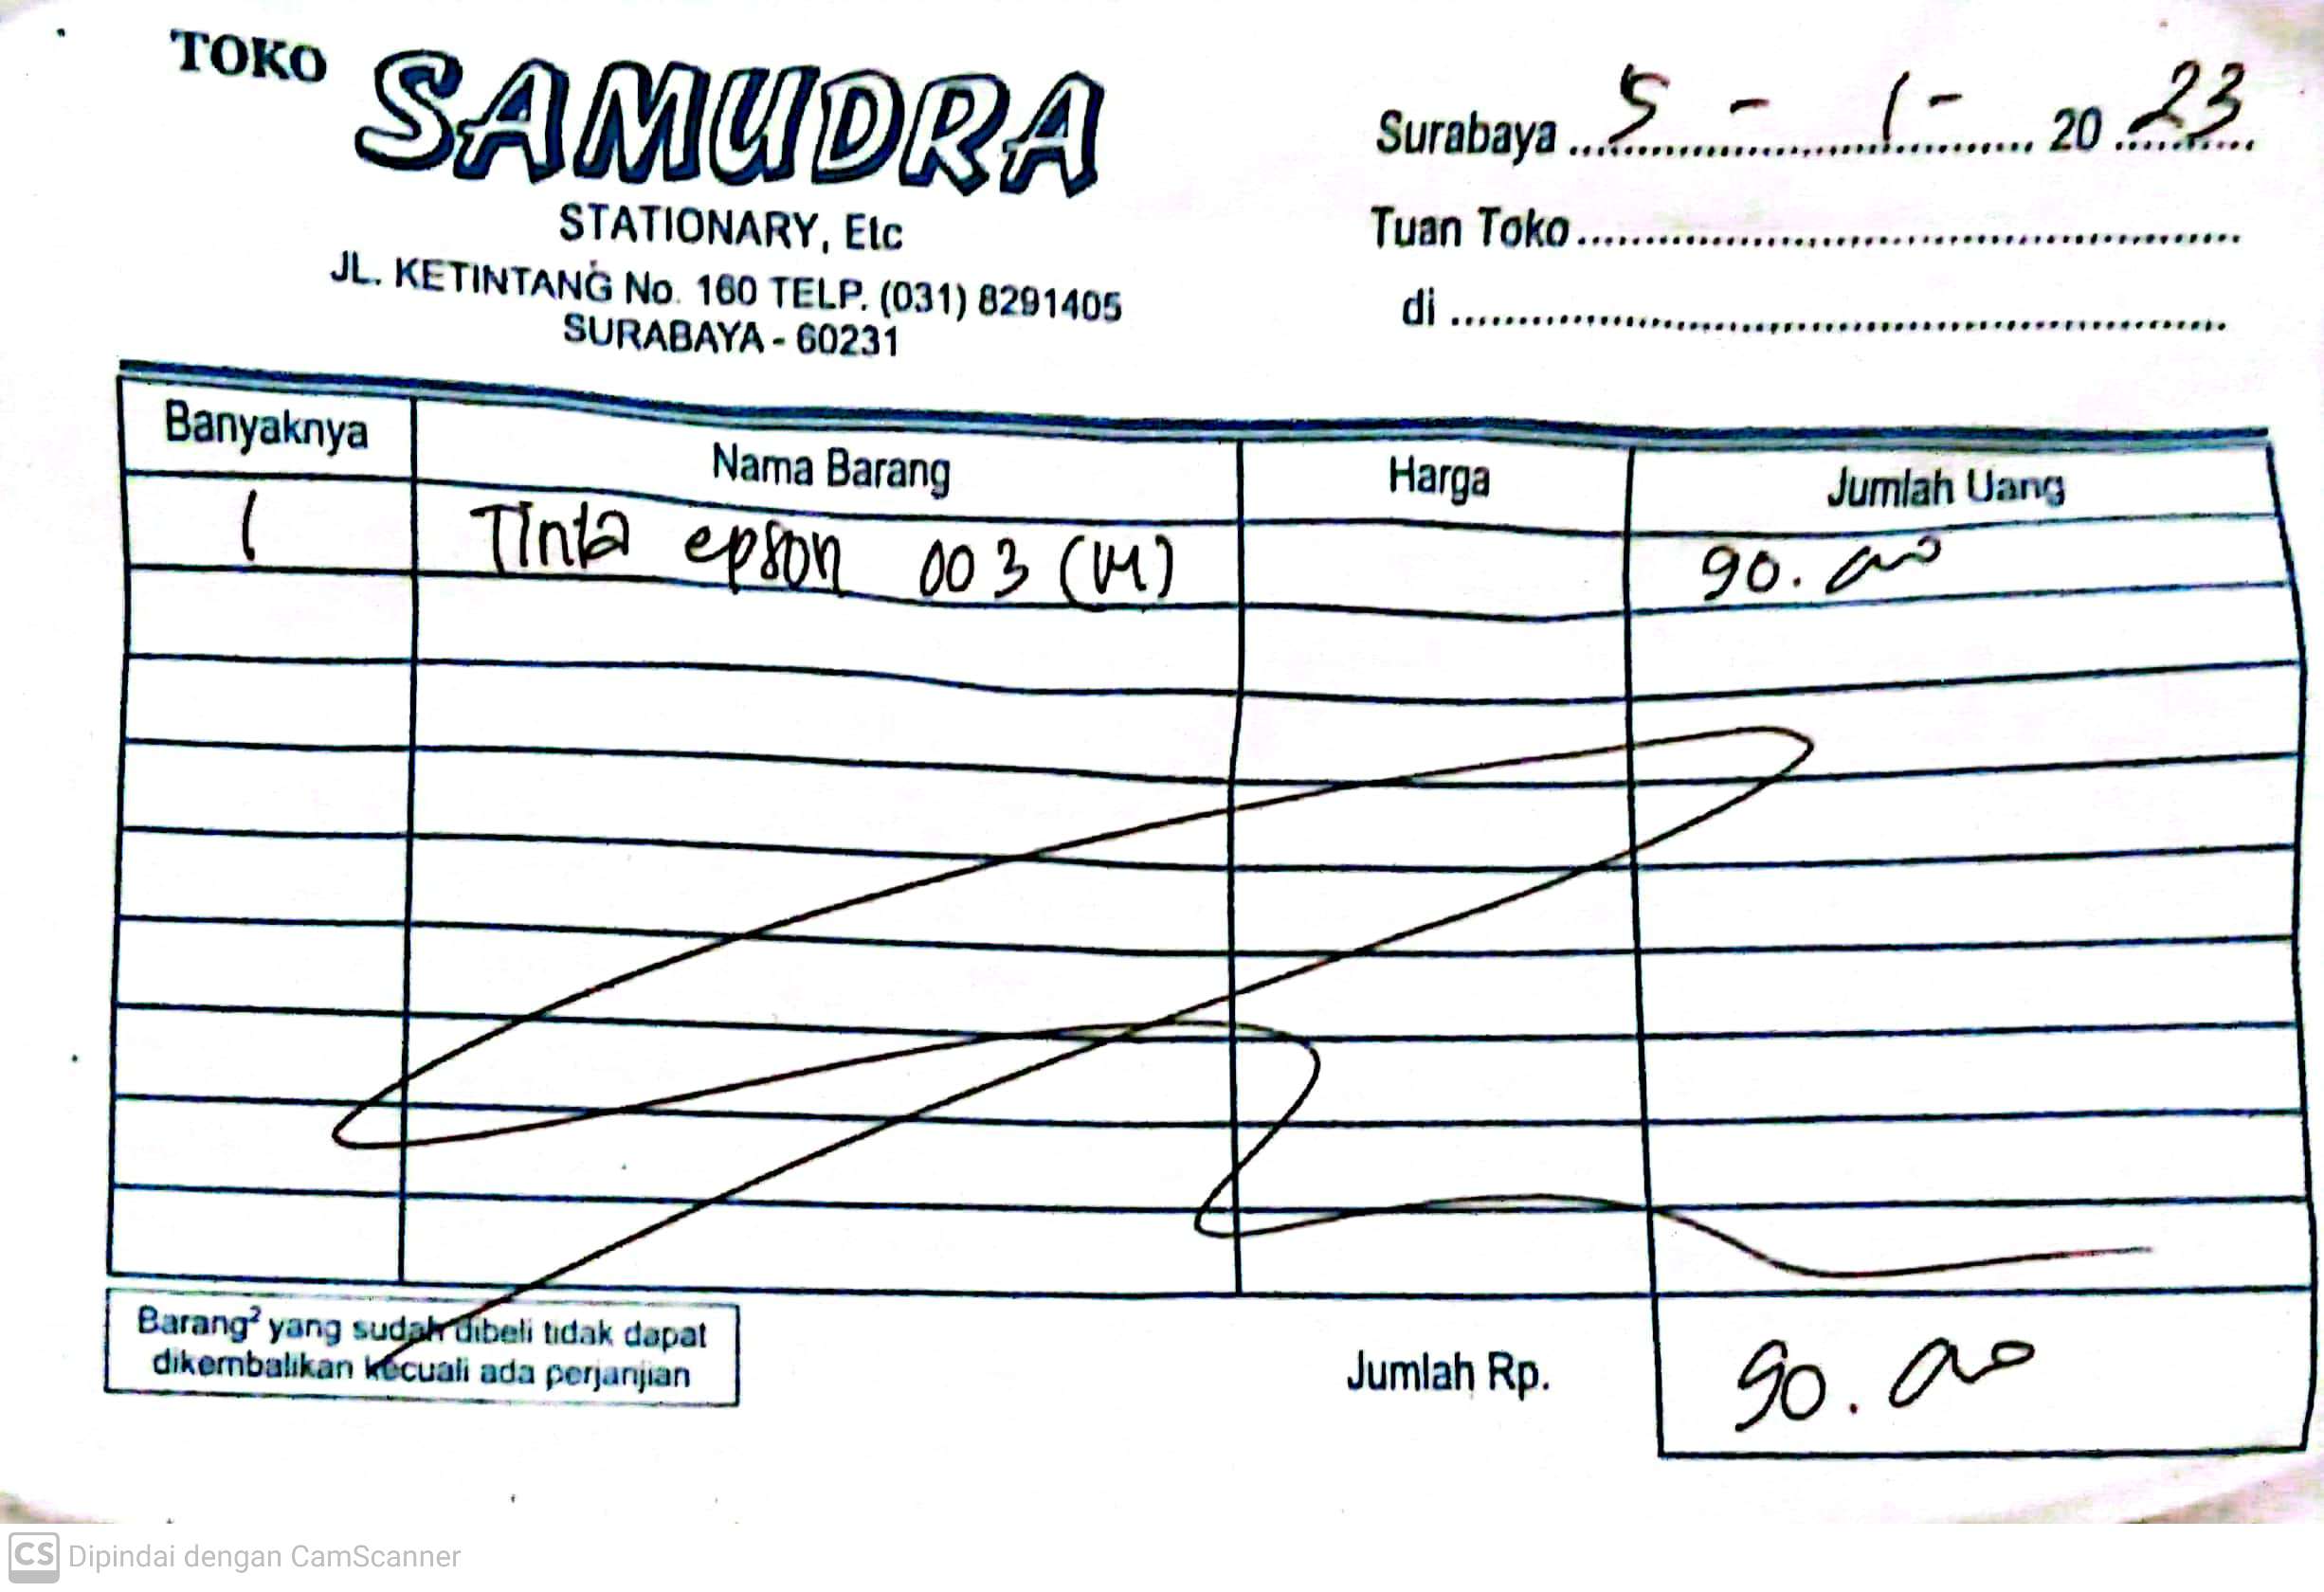 TOKO SAMUDRA
STATIONARY, Etc
JL. KETINTANG No. 160 TELP. (031) 8291405
SURABAYA - 60231
Surabaya 5 - 1 - 2023
Tuan Toko
di
Banyaknya Nama Barang Harga Jumlah Uang
1 Tinta epson 003 (M) 90.000
Barang² yang sudah dibeli tidak dapat
dikembalikan kecuali ada perjanjian
Jumlah Rp. 90.000
CS Dipindai dengan CamScanner